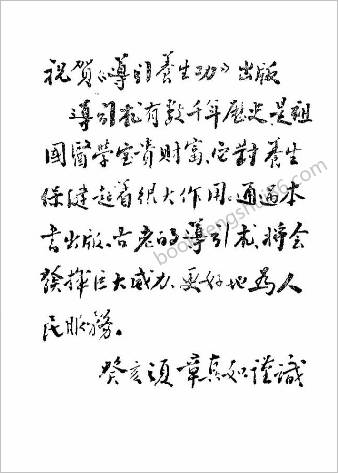 祝贺《導引養生功》出版
導引术有数千年歷史是祖
国醫學宝贵财富、它對養生
保健起着很大作用。通過本
书出版、古老的導引术、將会
發揮巨大威力、更好地為人
民服務。
癸亥须 章真如謹識